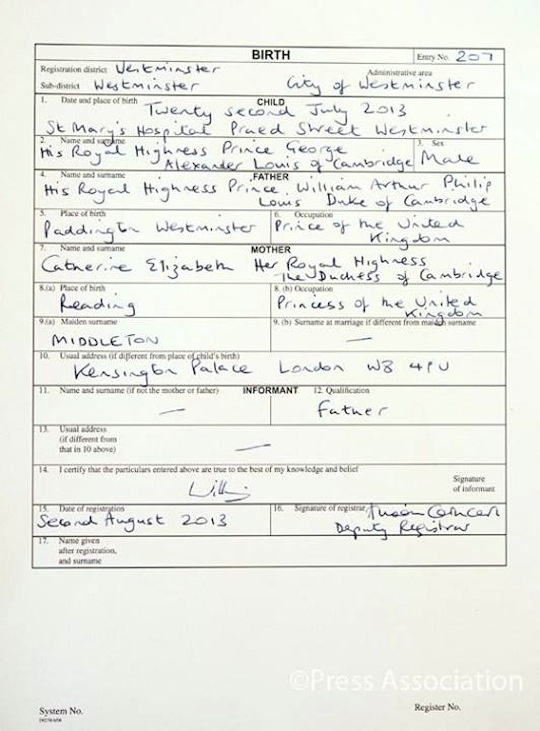 BIRTH
Entry No. 207
Registration district Westminster
Administrative area
Sub-district Westminster City of Westminster
CHILD
1. Date and place of birth Twenty second July 2013
St Mary's Hospital Praed Street Westminster
2. Name and surname 3. Sex
His Royal Highness Prince George
Alexander Louis of Cambridge Male
FATHER
4. Name and surname
His Royal Highness Prince William Arthur Philip
Louis Duke of Cambridge
5. Place of birth 6. Occupation
Paddington Westminster Prince of the United
Kingdom
7. Name and surname MOTHER
Catherine Elizabeth Her Royal Highness
The Duchess of Cambridge
8.(a) Place of birth 8. (b) Occupation
Reading Princess of the United
Kingdom
9.(a) Maiden surname 9. (b) Surname at marriage if different from maiden surname
MIDDLETON —
10. Usual address (if different from place of child's birth)
Kensington Palace London W8 4PU
11. Name and surname (if not the mother or father) INFORMANT 12. Qualification
— Father
13. Usual address
(if different from
that in 10 above) —
14. I certify that the particulars entered above are true to the best of my knowledge and belief
Signature
of informant
15. Date of registration 16. Signature of registrar
Second August 2013
Deputy Registrar
17. Name given
after registration,
and surname
©Press Association
System No. Register No.